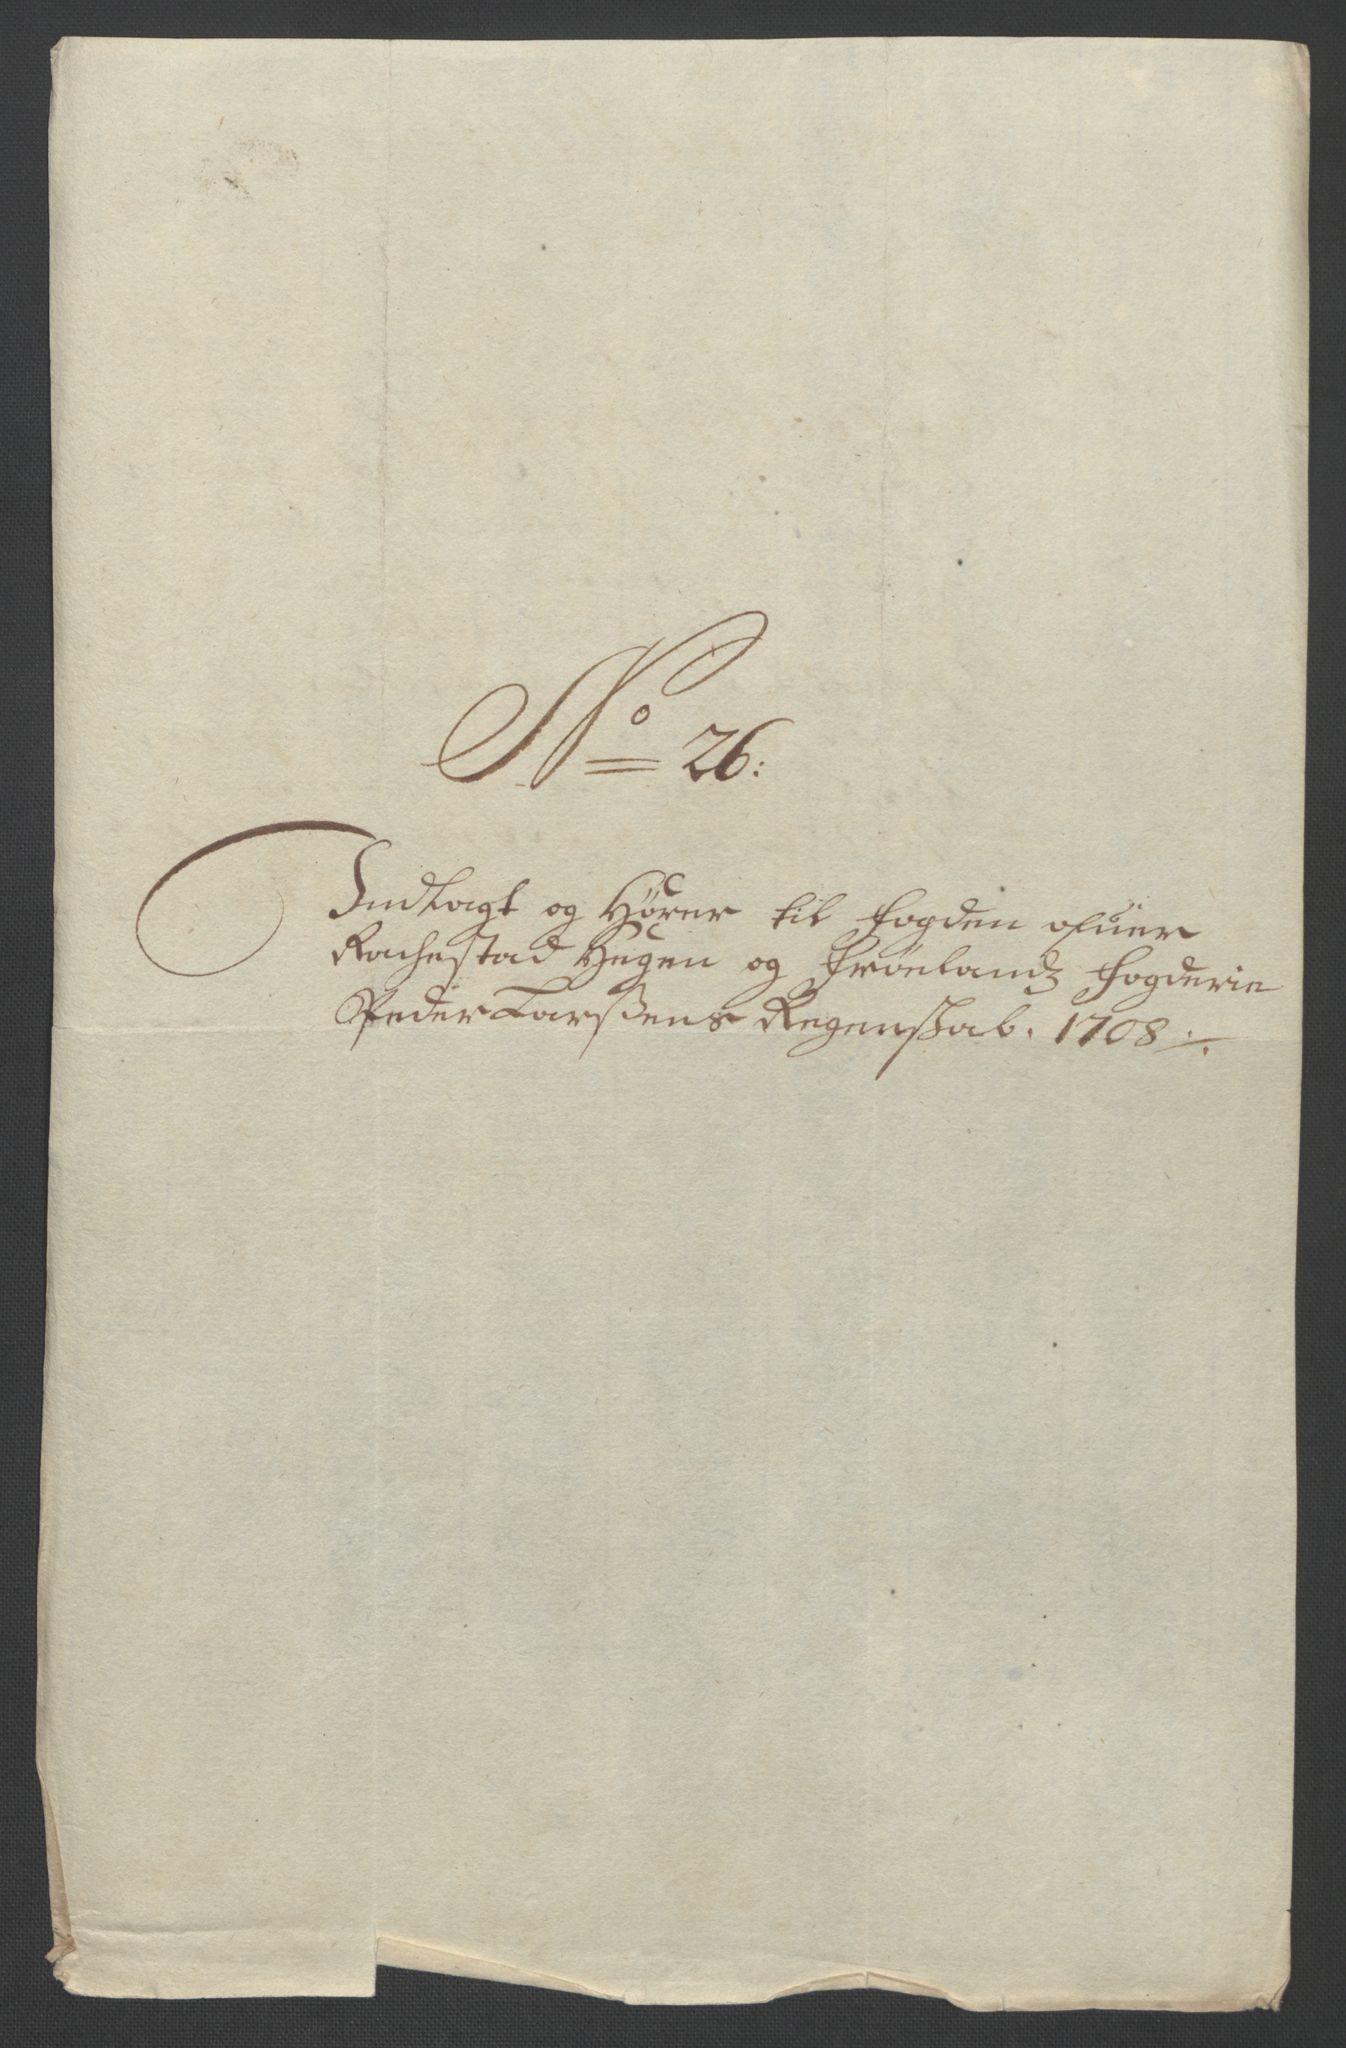 No 26:
Indlagt og Hører til fogden ofuer
Rachestad Heggen og frønlandz fogderie
Peder Larssens Regenskab. 1708 ./.